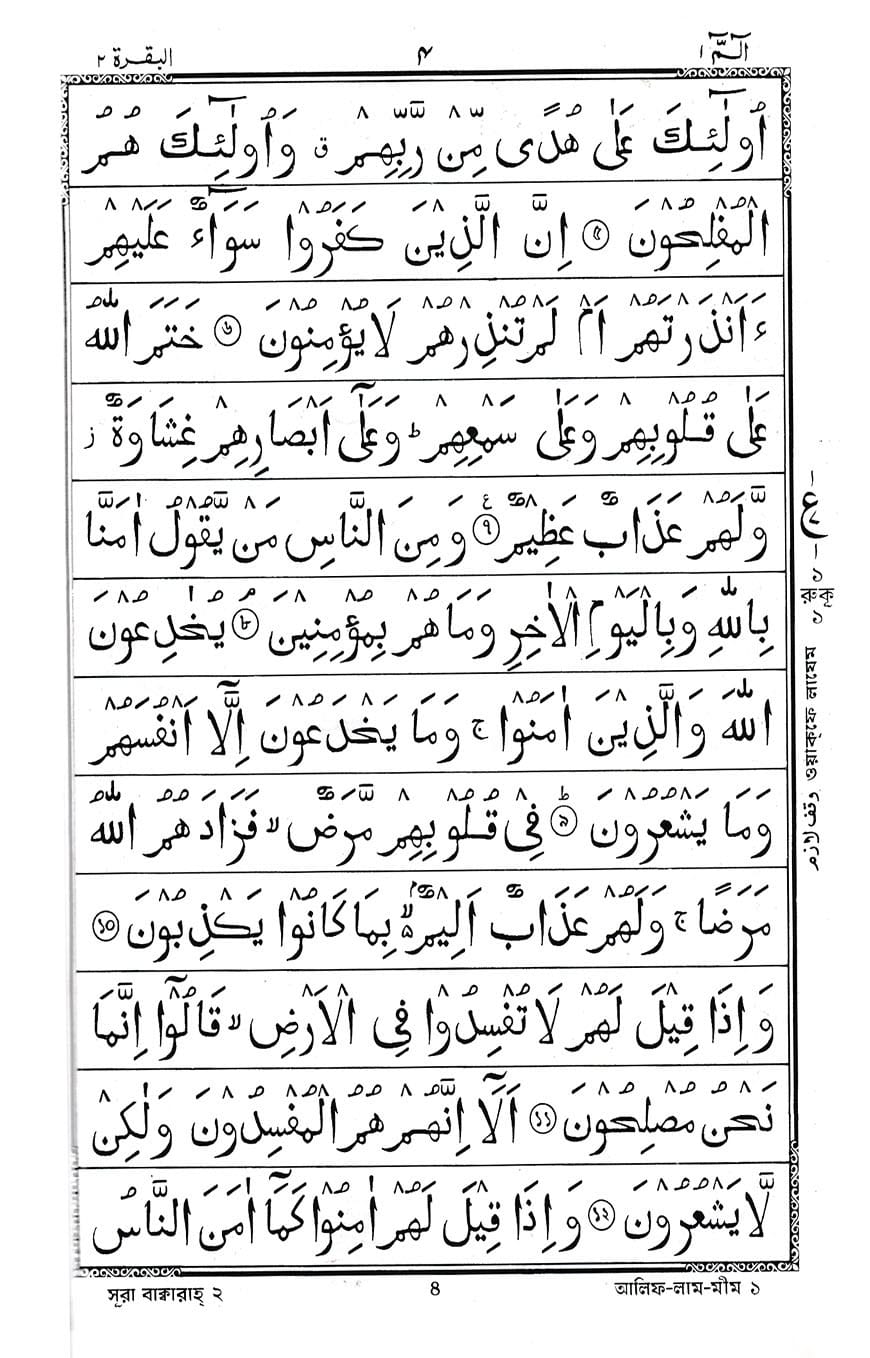 الٓمّٓ ١ ۴ البقرة ٢
اُولٰٓئِكَ عَلٰى هُدًى مِّنْ رَّبِّهِمْ ق وَاُولٰٓئِكَ هُمُ
الْمُفْلِحُوْنَ ۝٥ اِنَّ الَّذِيْنَ كَفَرُوْا سَوَآءٌ عَلَيْهِمْ
ءَاَنْذَرْتَهُمْ اَمْ لَمْ تُنْذِرْهُمْ لَا يُؤْمِنُوْنَ ۝٦ خَتَمَ اللهُ
عَلٰى قُلُوْبِهِمْ وَعَلٰى سَمْعِهِمْ ط وَعَلٰٓى اَبْصَارِهِمْ غِشَاوَةٌ ز
وَّلَهُمْ عَذَابٌ عَظِيْمٌ ۝٧ ع وَمِنَ النَّاسِ مَنْ يَّقُوْلُ اٰمَنَّا
بِاللهِ وَبِالْيَوْمِ الْاٰخِرِ وَمَا هُمْ بِمُؤْمِنِيْنَ ۝٨ م يُخٰدِعُوْنَ
اللهَ وَالَّذِيْنَ اٰمَنُوْا ج وَمَا يَخْدَعُوْنَ اِلَّآ اَنْفُسَهُمْ
وَمَا يَشْعُرُوْنَ ۝٩ ط فِيْ قُلُوْبِهِمْ مَّرَضٌ لا فَزَادَهُمُ اللهُ
مَرَضًا ج وَلَهُمْ عَذَابٌ اَلِيْمٌۢ ه لا بِمَا كَانُوْا يَكْذِبُوْنَ ۝١٠
وَاِذَا قِيْلَ لَهُمْ لَا تُفْسِدُوْا فِى الْاَرْضِ لا قَالُوْٓا اِنَّمَا
نَحْنُ مُصْلِحُوْنَ ۝١١ اَلَآ اِنَّهُمْ هُمُ الْمُفْسِدُوْنَ وَلٰكِنْ
لَّا يَشْعُرُوْنَ ۝١٢ وَاِذَا قِيْلَ لَهُمْ اٰمِنُوْا كَمَآ اٰمَنَ النَّاسُ
ع
রুকু ১
وقف لازم ওয়াক্‌ফে লাযেম
সূরা বাক্বারাহ্ ২ ৪ আলিফ-লাম-মীম ১